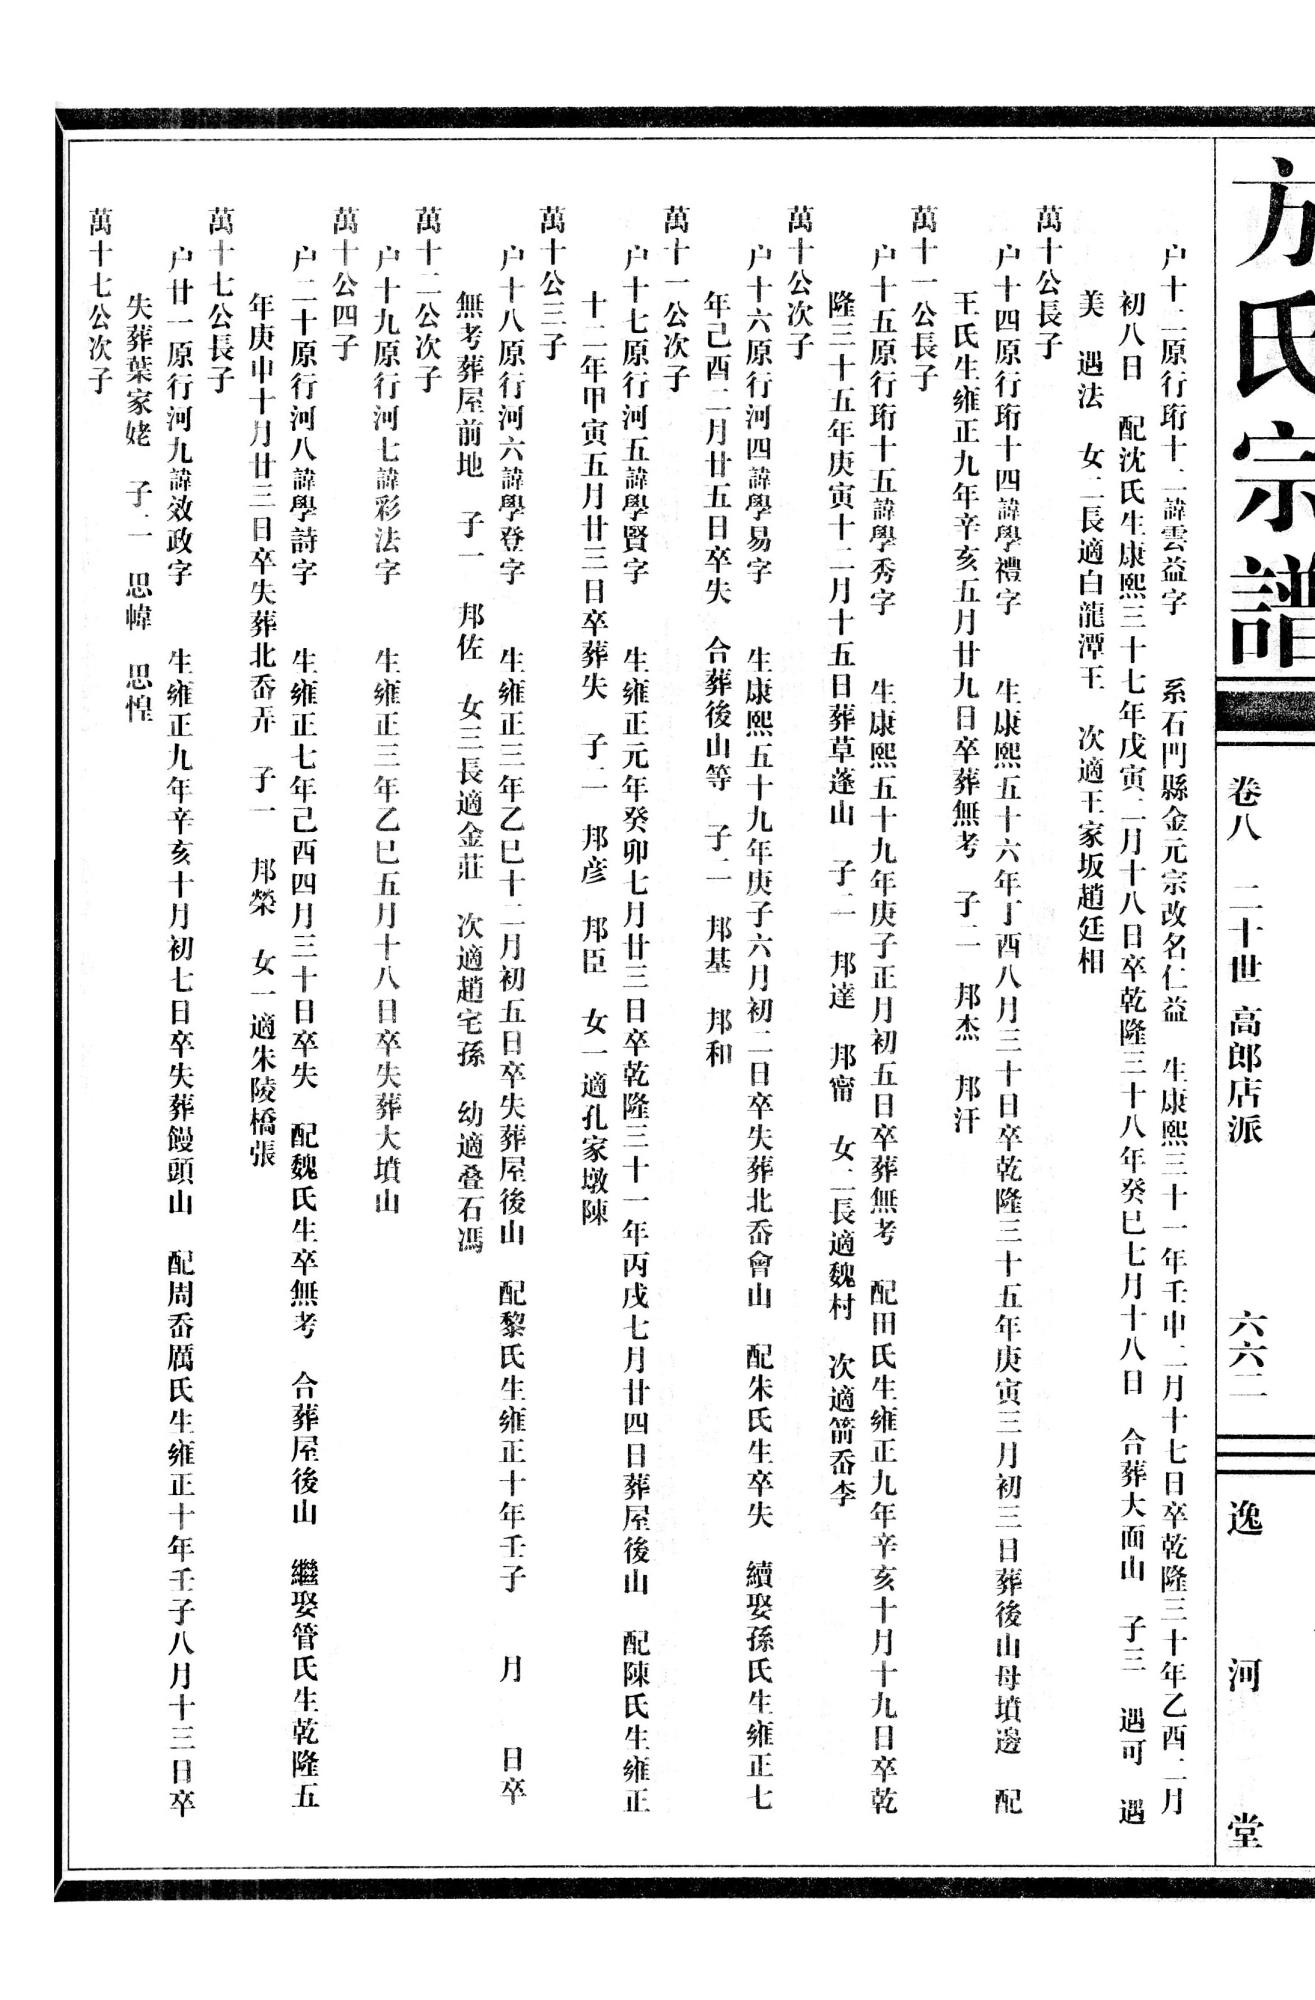 方氏宗譜
卷八　二十世　高郎店派　六六二
逸河堂
户十二原行珩十二諱雲益字　系石門縣金元宗改名仁益　生康熙三十一年壬申二月十七日卒乾隆三十年乙酉二月
初八日　配沈氏生康熙三十七年戊寅二月十八日卒乾隆三十八年癸巳七月十八日　合葬大面山　子三　遇可　遇
美　遇法　女二長適白龍潭王　次適王家坂趙廷相
萬十公長子
户十四原行珩十四諱學禮字　生康熙五十六年丁酉八月三十日卒乾隆三十五年庚寅三月初三日葬後山母墳邊　配
王氏生雍正九年辛亥五月廿九日卒葬無考　子二　邦杰　邦汗
萬十一公長子
户十五原行珩十五諱學秀字　生康熙五十九年庚子正月初五日卒葬無考　配田氏生雍正九年辛亥十月十九日卒乾
隆三十五年庚寅十二月十五日葬草蓬山　子二　邦達　邦甯　女二長適魏村　次適箭岙李
萬十公次子
户十六原行河四諱學易字　生康熙五十九年庚子六月初二日卒失葬北岙會山　配朱氏生卒失　續娶孫氏生雍正七
年己酉二月廿五日卒失　合葬後山等　子二　邦基　邦和
萬十一公次子
户十七原行河五諱學賢字　生雍正元年癸卯七月廿三日卒乾隆三十一年丙戌七月廿四日葬屋後山　配陳氏生雍正
十二年甲寅五月廿三日卒葬失　子二　邦彦　邦臣　女一適孔家墩陳
萬十公三子
户十八原行河六諱學登字　生雍正三年乙巳十二月初五日卒失葬屋後山　配黎氏生雍正十年壬子　月　日卒
無考葬屋前地　子一　邦佐　女三長適金莊　次適趙宅孫　幼適叠石馮
萬十二公次子
户十九原行河七諱彩法字　生雍正三年乙巳五月十八日卒失葬大墳山
萬十公四子
户二十原行河八諱學詩字　生雍正七年己酉四月三十日卒失　配魏氏生卒無考　合葬屋後山　繼娶管氏生乾隆五
年庚申十月廿三日卒失葬北岙弄　子一　邦榮　女一適朱陵橋張
萬十七公長子
户廿一原行河九諱效政字　生雍正九年辛亥十月初七日卒失葬饅頭山　配周岙厲氏生雍正十年壬子八月十三日卒
失葬葉家姥　子二　思幃　思惶
萬十七公次子